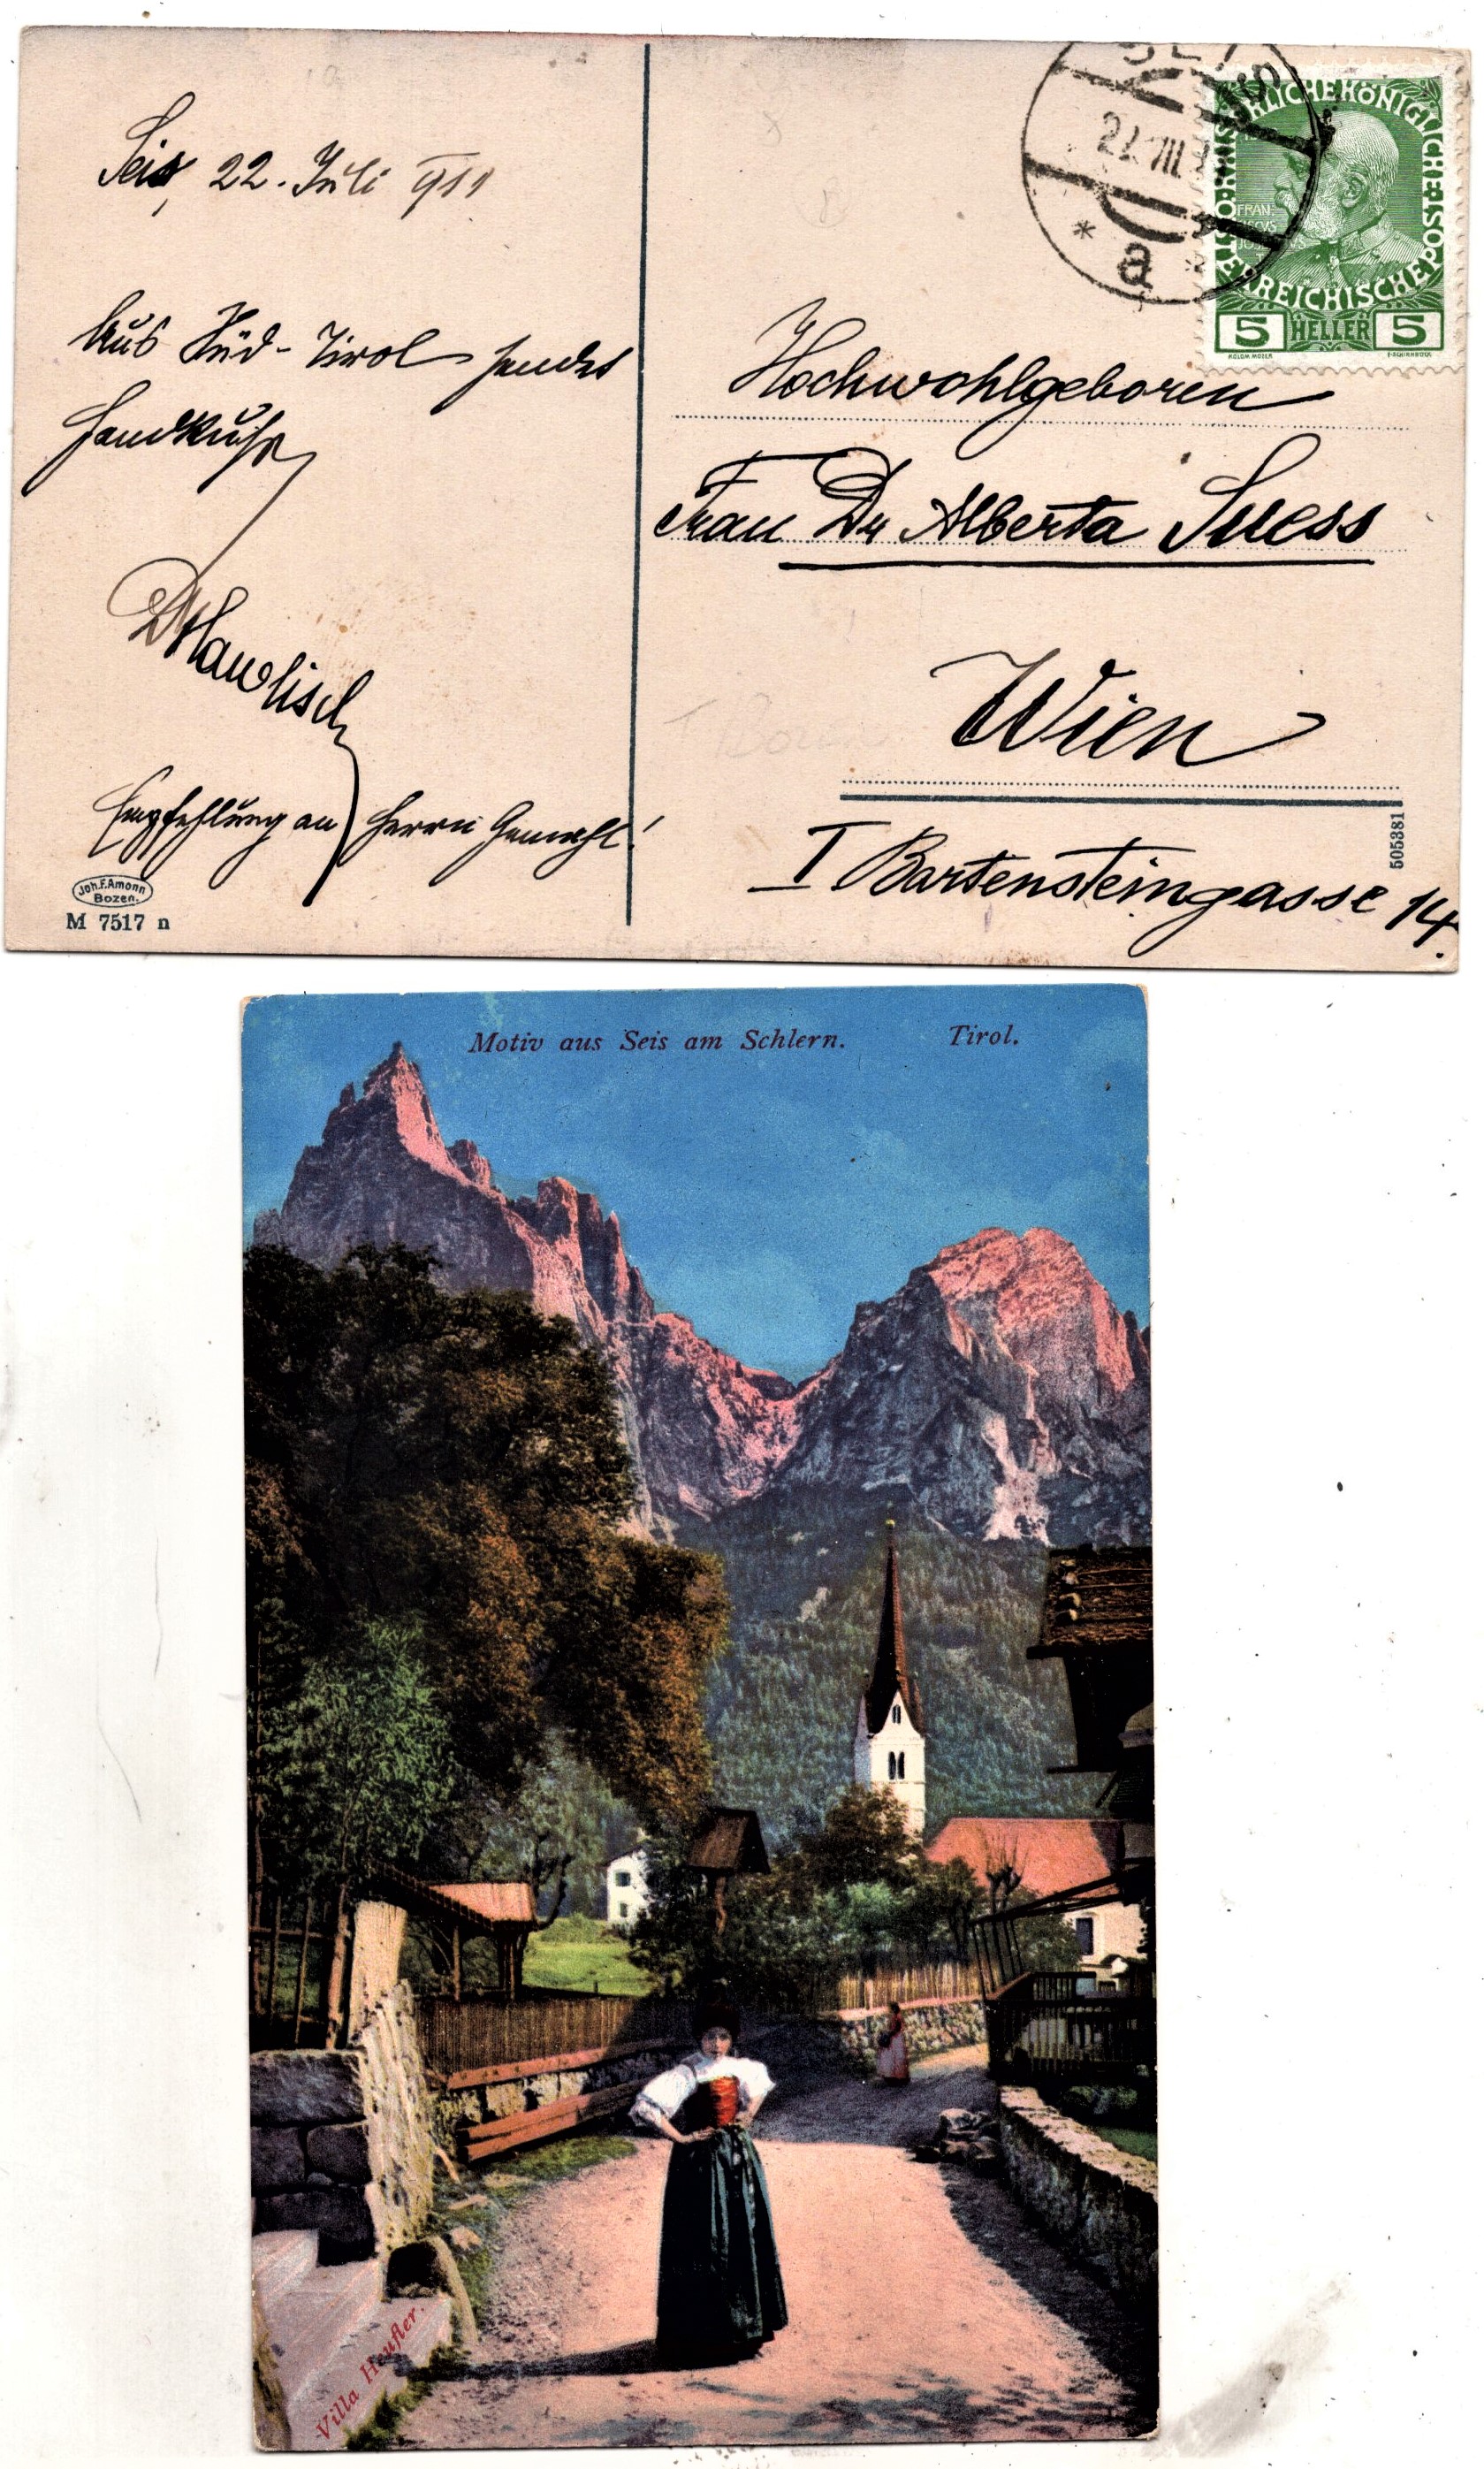 Seis, 22. Juli 1911
Aus Süd-Tirol sendet
Handkuss
Empfehlung an Herrn Gemahl!
Joh.F.Amonn
Bozen.
M 7517 n
SEIS
a
KAISERLICHE KÖNIGLICHE
ÖSTERREICHISCHE POST
FRAN-
CISCVS
5 HELLER 5
Hochwohlgeboren
Frau Dr Alberta Suess
Wien
I Bartensteingasse 14.
505381
Motiv aus Seis am Schlern. Tirol.
Villa Heufler.